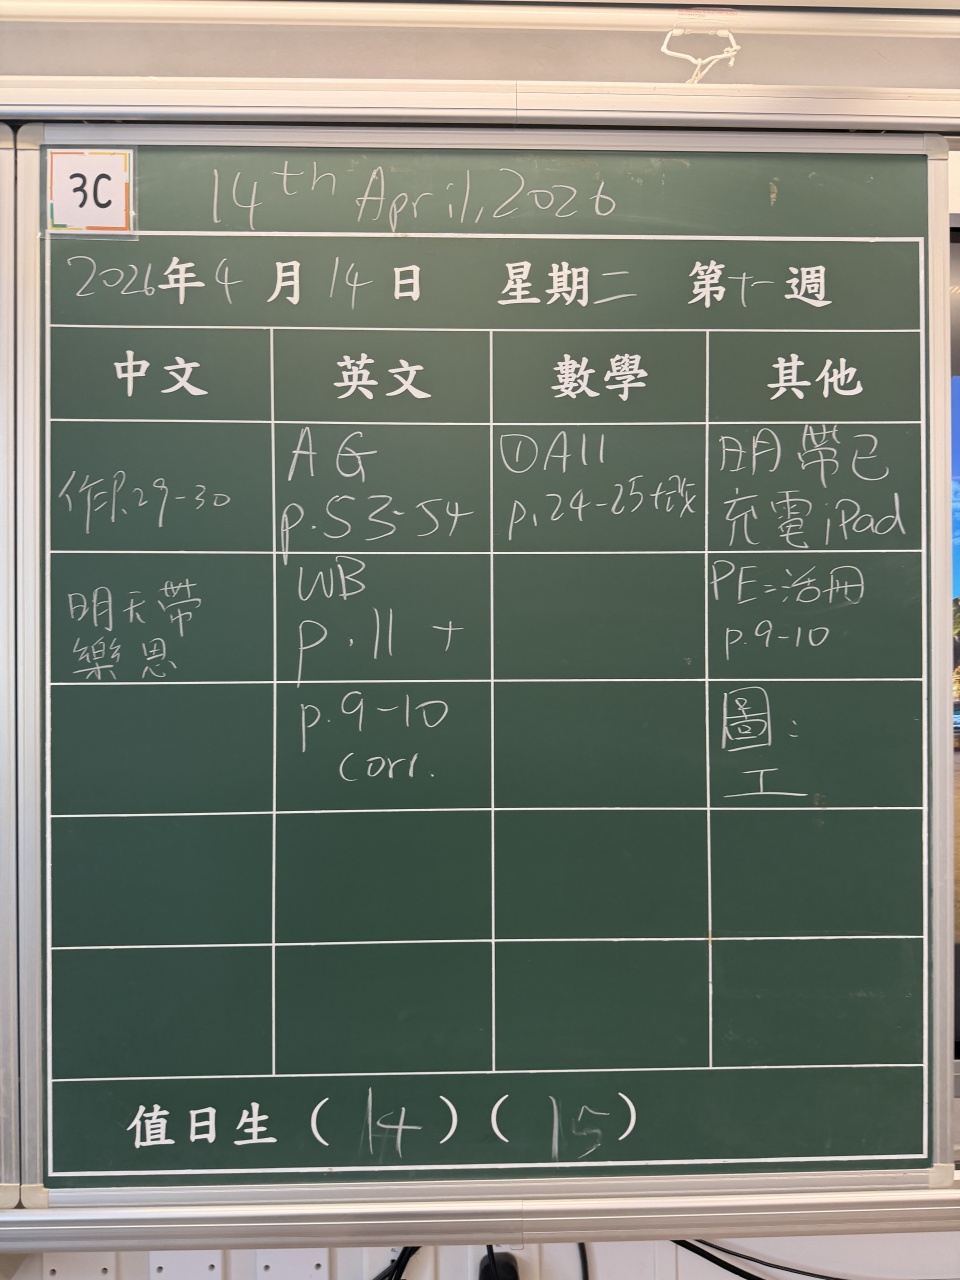 3C
14th April, 2026
2026年4月14日 星期二 第十一週
中文 英文 數學 其他
作P.29-30
明天帶
樂思
AG
p.53-54
WB
p.11 +
p.9-10
corr.
①A11
p.24-25+改
明帶已
充電iPad
PE:活冊
p.9-10
圖:
工
值日生(14)(15)